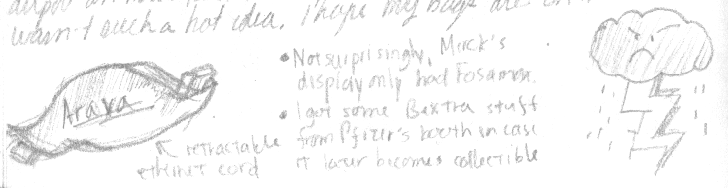 wasn't such a hot idea. I hope my bugs are
Arava
retractable
ethernet cord
• Not surprisingly, Merck's
display only had Fosamax.
• I got some Bextra stuff
from Pfizer's booth in case
it later becomes collectible